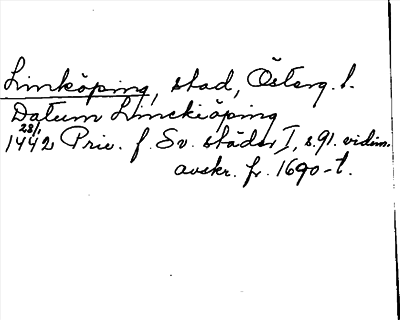 Linköping, stad, Österg. l.
Datum Linckiöping
28/1
1442 Priv. f. Sv. städer I, s. 91. vidim.
avskr. fr. 1690-t.